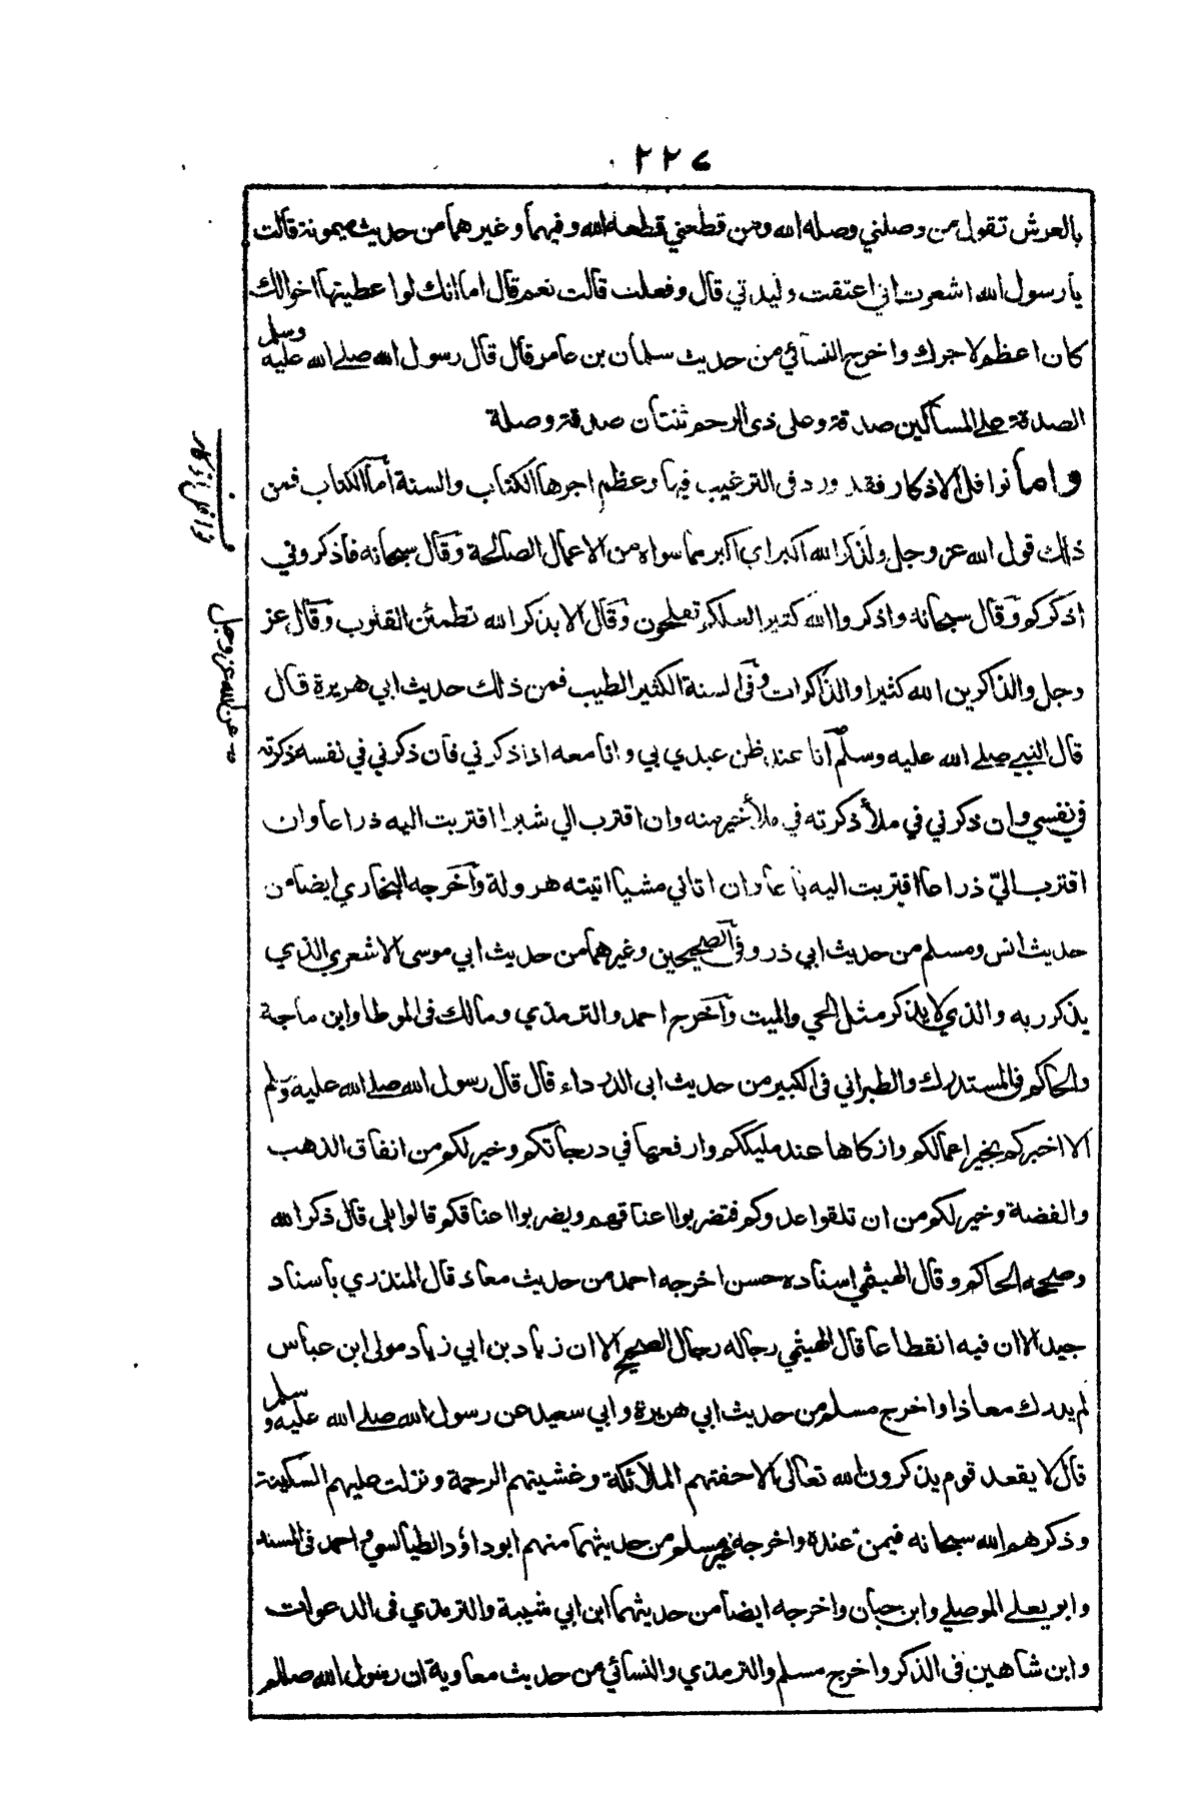 ٢٢٧
بالعرش تقول من وصلني وصله الله ومن قطعني قطعه الله وفيهما وغيرهما من حديث ميمونة قالت
يا رسول الله اشعرت اني اعتقت وليدتي قال وفعلت قالت نعم قال اما انك لو اعطيتها اخوالك
كان اعظم لاجرك واخرج النسائي من حديث سلمان بن عامر قال قال رسول الله صلے الله عليه وسلم
الصدقة علے المساكين صدقة وعلى ذى الرحم ثنتان صدقة وصلة
واما نوافل الاذكار فقد ورد فى الترغيب فيها وعظم اجرها الكتاب والسنة أما الكتاب فمن
ذلك قول الله عز وجل ولذكر الله اكبر اي اكبر مما سواه من الاعمال الصالحة وقال سبحانه فاذكروني
اذكركم وقال سبحانه واذكروا الله كثيرا لعلكم تفلحون وقال الا بذكر الله تطمئن القلوب وقال عز
وجل والذاكرين الله كثيرا والذاكرات وفى السنة الكثير الطيب فمن ذلك حديث ابي هريرة قال
قال النبي صلے الله عليه وسلم أنا عند ظن عبدي بي وانا معه اذا ذكرني فان ذكرني في نفسه ذكرته
في نفسي وان ذكرني في ملأ ذكرته في ملأ خير منه وان اقترب الي شبرا اقتربت اليه ذراعا وان
اقترب اليّ ذراعا اقتربت اليه باعا وان اتاني مشيا اتيته هرولة وأخرجه البخاري ايضا من
حديث انس ومسلم من حديث ابي ذر وفى الصحيحين وغيرهما من حديث ابي موسى الاشعري الذي
يذكر ربه والذي لا يذكر مثل الحي والميت وأخرج احمد والترمذي ومالك فى الموطا وابن ماجة
والحاكم فى المستدرك والطبراني فى الكبير من حديث ابى الدرداء قال قال رسول الله صلے الله عليه وسلم
الا اخبركم بخير اعمالكم وازكاها عند مليككم وارفعها في درجاتكم وخير لكم من انفاق الذهب
والفضة وخير لكم من ان تلقوا عدوكم فتضربوا اعناقهم ويضربوا اعناقكم قالوا بلى قال ذكر الله
وصححه الحاكم وقال الهيثمي اسناده حسن اخرجه احمد من حديث معاذ قال المنذري باسناد
جيد الا ان فيه انقطاعا قال الهيثمي رجاله رجال الصحيح الا ان زياد بن ابي زياد مولى ابن عباس
لم يدرك معاذا واخرج مسلم من حديث ابي هريرة وابي سعيد عن رسول الله صلے الله عليه وسلم
قال لا يقعد قوم يذكرون الله تعالى الا حفتهم الملائكة وغشيتهم الرحمة ونزلت عليهم السكينة
وذكرهم الله سبحانه فيمن عنده واخرجه غير مسلم من حديثهما منهم ابو داؤد الطيالسي واحمد فى المسند
وابو يعلے الموصلي وابن حبان واخرجه ايضا من حديثهما ابن ابي شيبة والترمذي فى الدعوات
وابن شاهين فى الذكر واخرج مسلم والترمذي والنسائي من حديث معاوية ان رسول الله صللم
نوافل اذكار